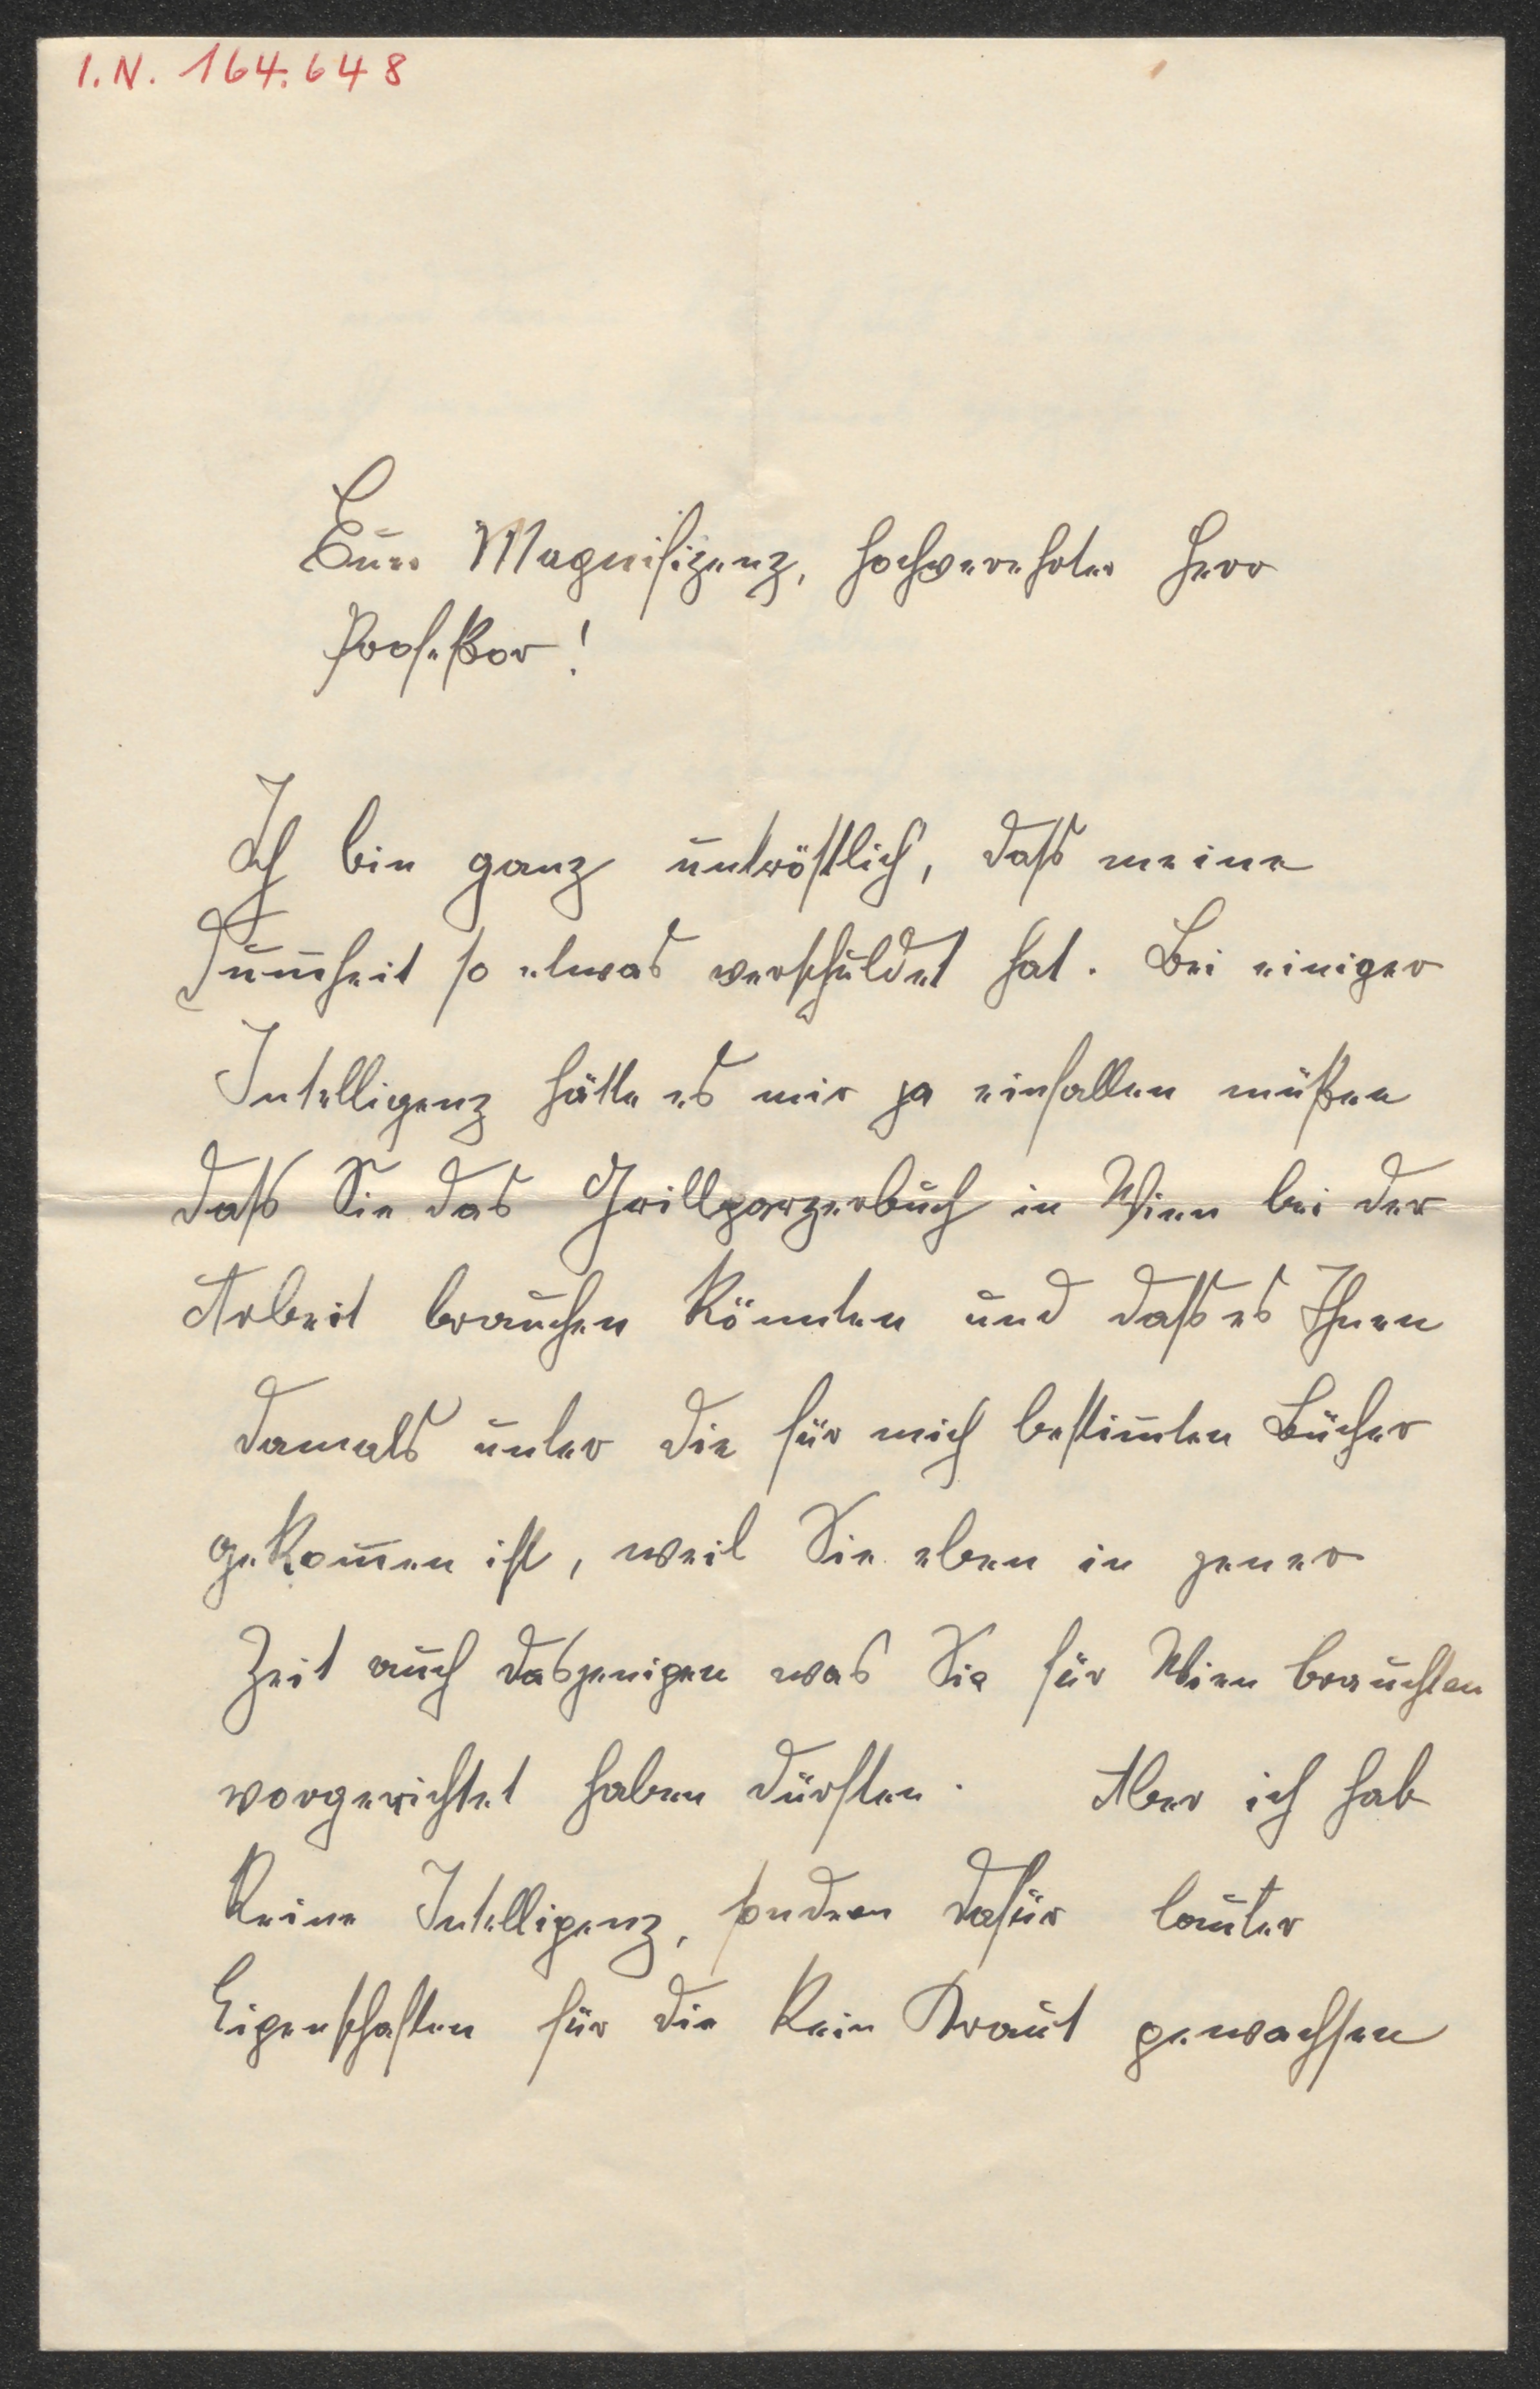 I.N. 164.648
Eure Magnifizenz, hochverehrter Herr
Profeßor!
Ich bin ganz untröstlich, dass meine
Dum̅heit so etwas verschuldet hat. Bei einiger
Intelligenz hätte es mir ja einfallen müßen
dass Sie das Grillparzerbuch in Wien bei der
Arbeit brauchen könnten und dass es Ihnen
damals unter die für mich bestim̅ten Bücher
gekom̅en ist, weil Sie eben in jener
Zeit auch dasjenigen was Sie für Wien brauchten
vorgerichtet haben dürften. Aber ich hab
keine Intelligenz, sondern dafür lauter
Eigenschaften für die kein Kraut gewachsen